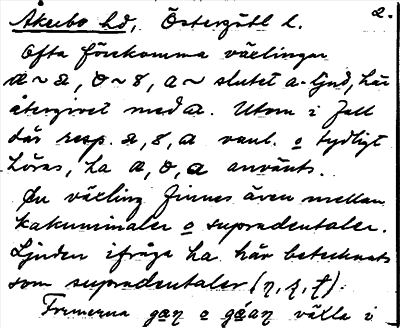 Åkerbo hd, Östergötl l. 2.
Ofta förekomma växlingar
a ~ a, ʋ ~ 8, a ~ slutet a-ljud, här
återgivet med a. Utom i fall
där resp. a, 8, a vanl. o tydligt
höras, ha a, ʋ, a använts.
En växling finnes även mellan
kakuminaler o supradentaler.
Ljuden ifråga ha här betecknats
som supradentaler (
Formerna o välla i